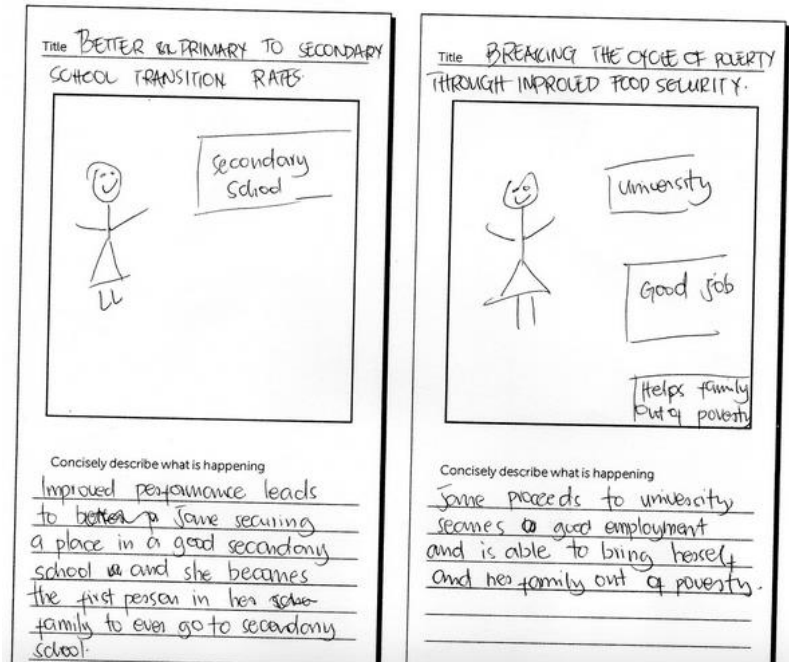 Title BETTER PRIMARY TO SECONDARY
SCHOOL TRANSITION RATES.
secondary
school
Concisely describe what is happening
Improved performance leads
to Jane securing
a place in a good secondary
school and she becomes
the first person in her
family to ever go to secondary
school.
Title BREAKING THE CYCLE OF POVERTY
THROUGH IMPROVED FOOD SECURITY.
University
Good job
Helps family
out of poverty
Concisely describe what is happening
Jane proceeds to university
secures good employment
and is able to bring herself
and her family out of poverty.